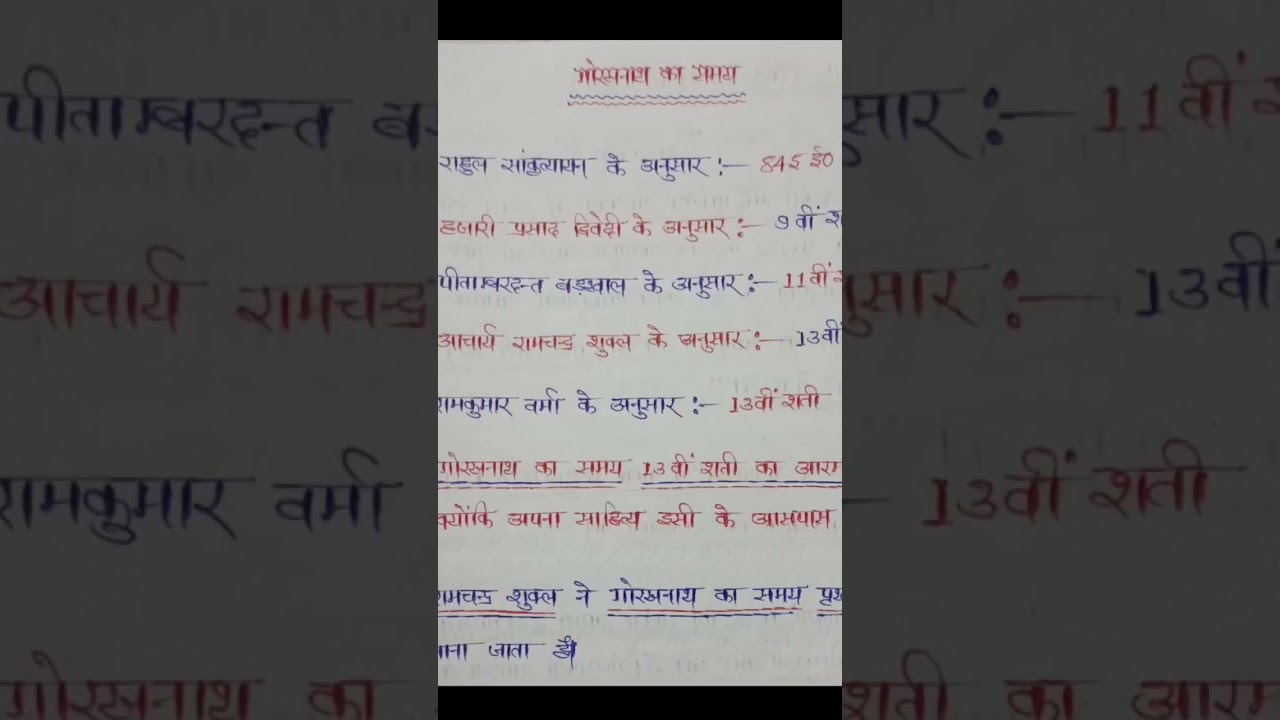 गोरखनाथ का समय
राहुल सांकृत्यायन के अनुसार :— 845 ई०
हजारी प्रसाद द्विवेदी के अनुसार :— 9वीं श
पीताम्बरदत्त बड़थ्वाल के अनुसार :— 11वीं
आचार्य रामचन्द्र शुक्ल के अनुसार :— 13वीं
रामकुमार वर्मा के अनुसार :— 13वीं शती
गोरखनाथ का समय 13वीं शती का आरम
क्योंकि अपना साहित्य इसी के आसपास
रामचन्द्र शुक्ल ने गोरखनाथ का समय पृथ
माना जाता है।